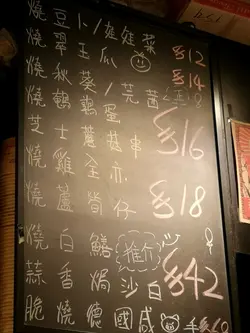 燒豆卜/娃娃菜
燒翠玉瓜 $12
燒秋葵/芫茜 $14
燒鵪鶉蛋
芝士蘑菇串 $16
燒雞全亦
燒蘆筍仔 $18
燒白鱔 推介
蒜香焗沙白 $42
脆燒德國咸